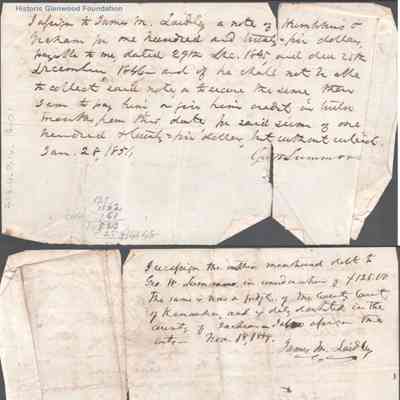 Historic Glenwood Foundation
I assign to James M. Laidley a note of
for one hundred and twenty six dollars
payable to me dated 29th Dec. 1845 and due 25th
December 1846 and if he shall not be able
to collect said note or to secure the same then
I am to pay him or give him credit in twelve
months from this date for said sum of one
hundred & twenty six dollars but without interest.
Jan. 28 185 Summers
I reassign the within mentioned debt to
Geo. W. Summers, in consideration of $126.00
The same is now a judgt. of the County Court
of Kanawha, and is duly docketed in the
County of Jackson
Nov. 18, James M. Laidley